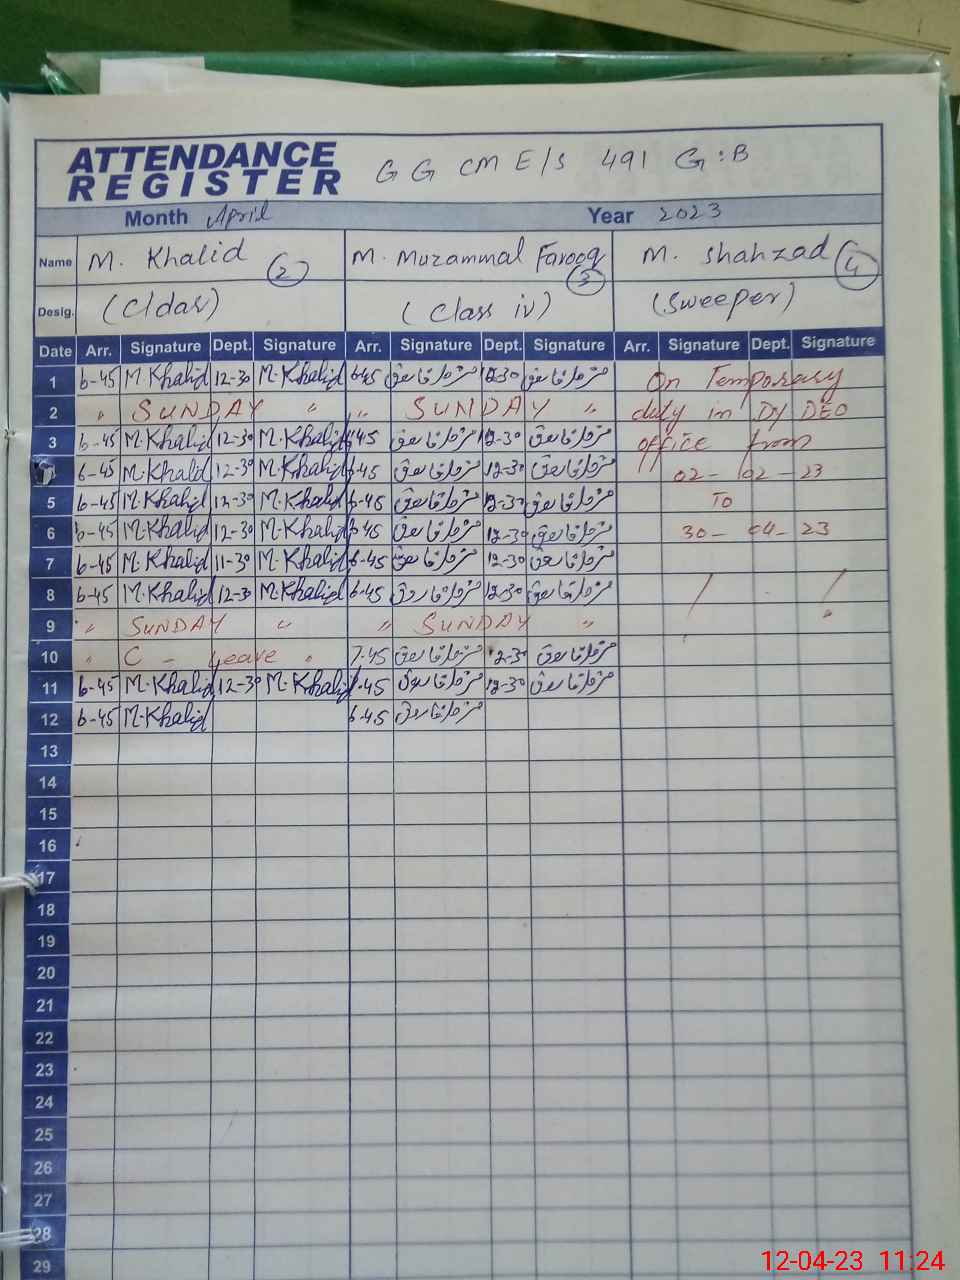 ATTENDANCE REGISTER G G CM E/S 491 G:B
Month April Year 2023
Name M. Khalid 2 M. Muzammal Farooq 3 M. Shahzad 4
Desig. (Cldar) (Class iv) (Sweeper)
Date Arr. Signature Dept. Signature Arr. Signature Dept. Signature Arr. Signature Dept. Signature
1 6-45 M.Khalid 12-30 M.Khalid 6-45 12-30 On Temporary
2 " SUNDAY " " SUNDAY " duty in DY DEO
3 6-45 M.Khalid 12-30 M.Khalid 6-45 12-30 office from
4 6-45 M.Khalid 12-30 M.Khalid 6-45 12-30 02-02-23
5 6-45 M.Khalid 12-30 M.Khalid 6-45 12-30 To
6 6-45 M.Khalid 12-30 M.Khalid 6-45 12-30 30-04-23
7 6-45 M.Khalid 11-30 M.Khalid 6-45 12-30
8 6-45 M.Khalid 12-30 M.Khalid 6-45 12-30
9 " SUNDAY " " SUNDAY " "
10 " C - Leave " 7.45 12-30
11 6-45 M.Khalid 12-30 M.Khalid 12-30
12 6-45 M.Khalid 6-45
13
14
15
16
17
18
19
20
21
22
23
24
25
26
27
28
29
12-04-23 11:24